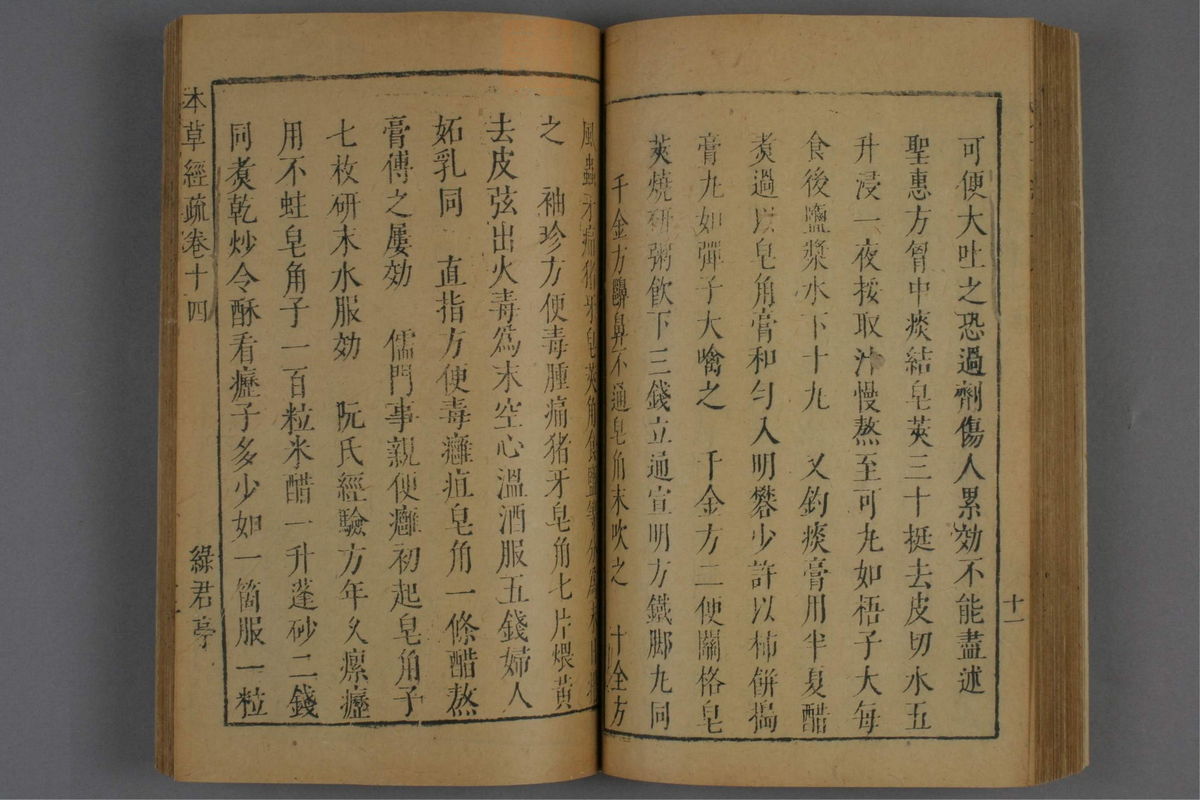 十一
可便大吐之恐過劑傷人累効不能盡述
聖惠方胷中痰結皂莢三十挺去皮切水五
升浸一夜挼取汁慢熬至可丸如梧子大每
食後鹽漿水下十丸　又釣痰膏用半夏醋
煑過以皂角膏和勻入明礬少許以柿餅搗
膏丸如彈子大噙之　千金方二便關格皂
莢燒研粥飲下三錢立通宣明方鐵脚丸同
千金方齆鼻不通皂角末吹之　十全方
風蟲牙痛猪牙皂莢角食鹽等分為末日
之　袖珍方便毒腫痛猪牙皂角七片煨黃
去皮弦出火毒爲末空心溫酒服五錢婦人
妬乳同　直指方便毒癰疽皂角一條醋熬
膏傅之屢効　儒門事親便癰初起皂角子
七枚研末水服効　阮氏經驗方年久瘰癧
用不蛀皂角子一百粒米醋一升蓬砂二錢
同煑乾炒令酥看癧子多少如一箇服一粒
本草經疏卷十四
綠君亭